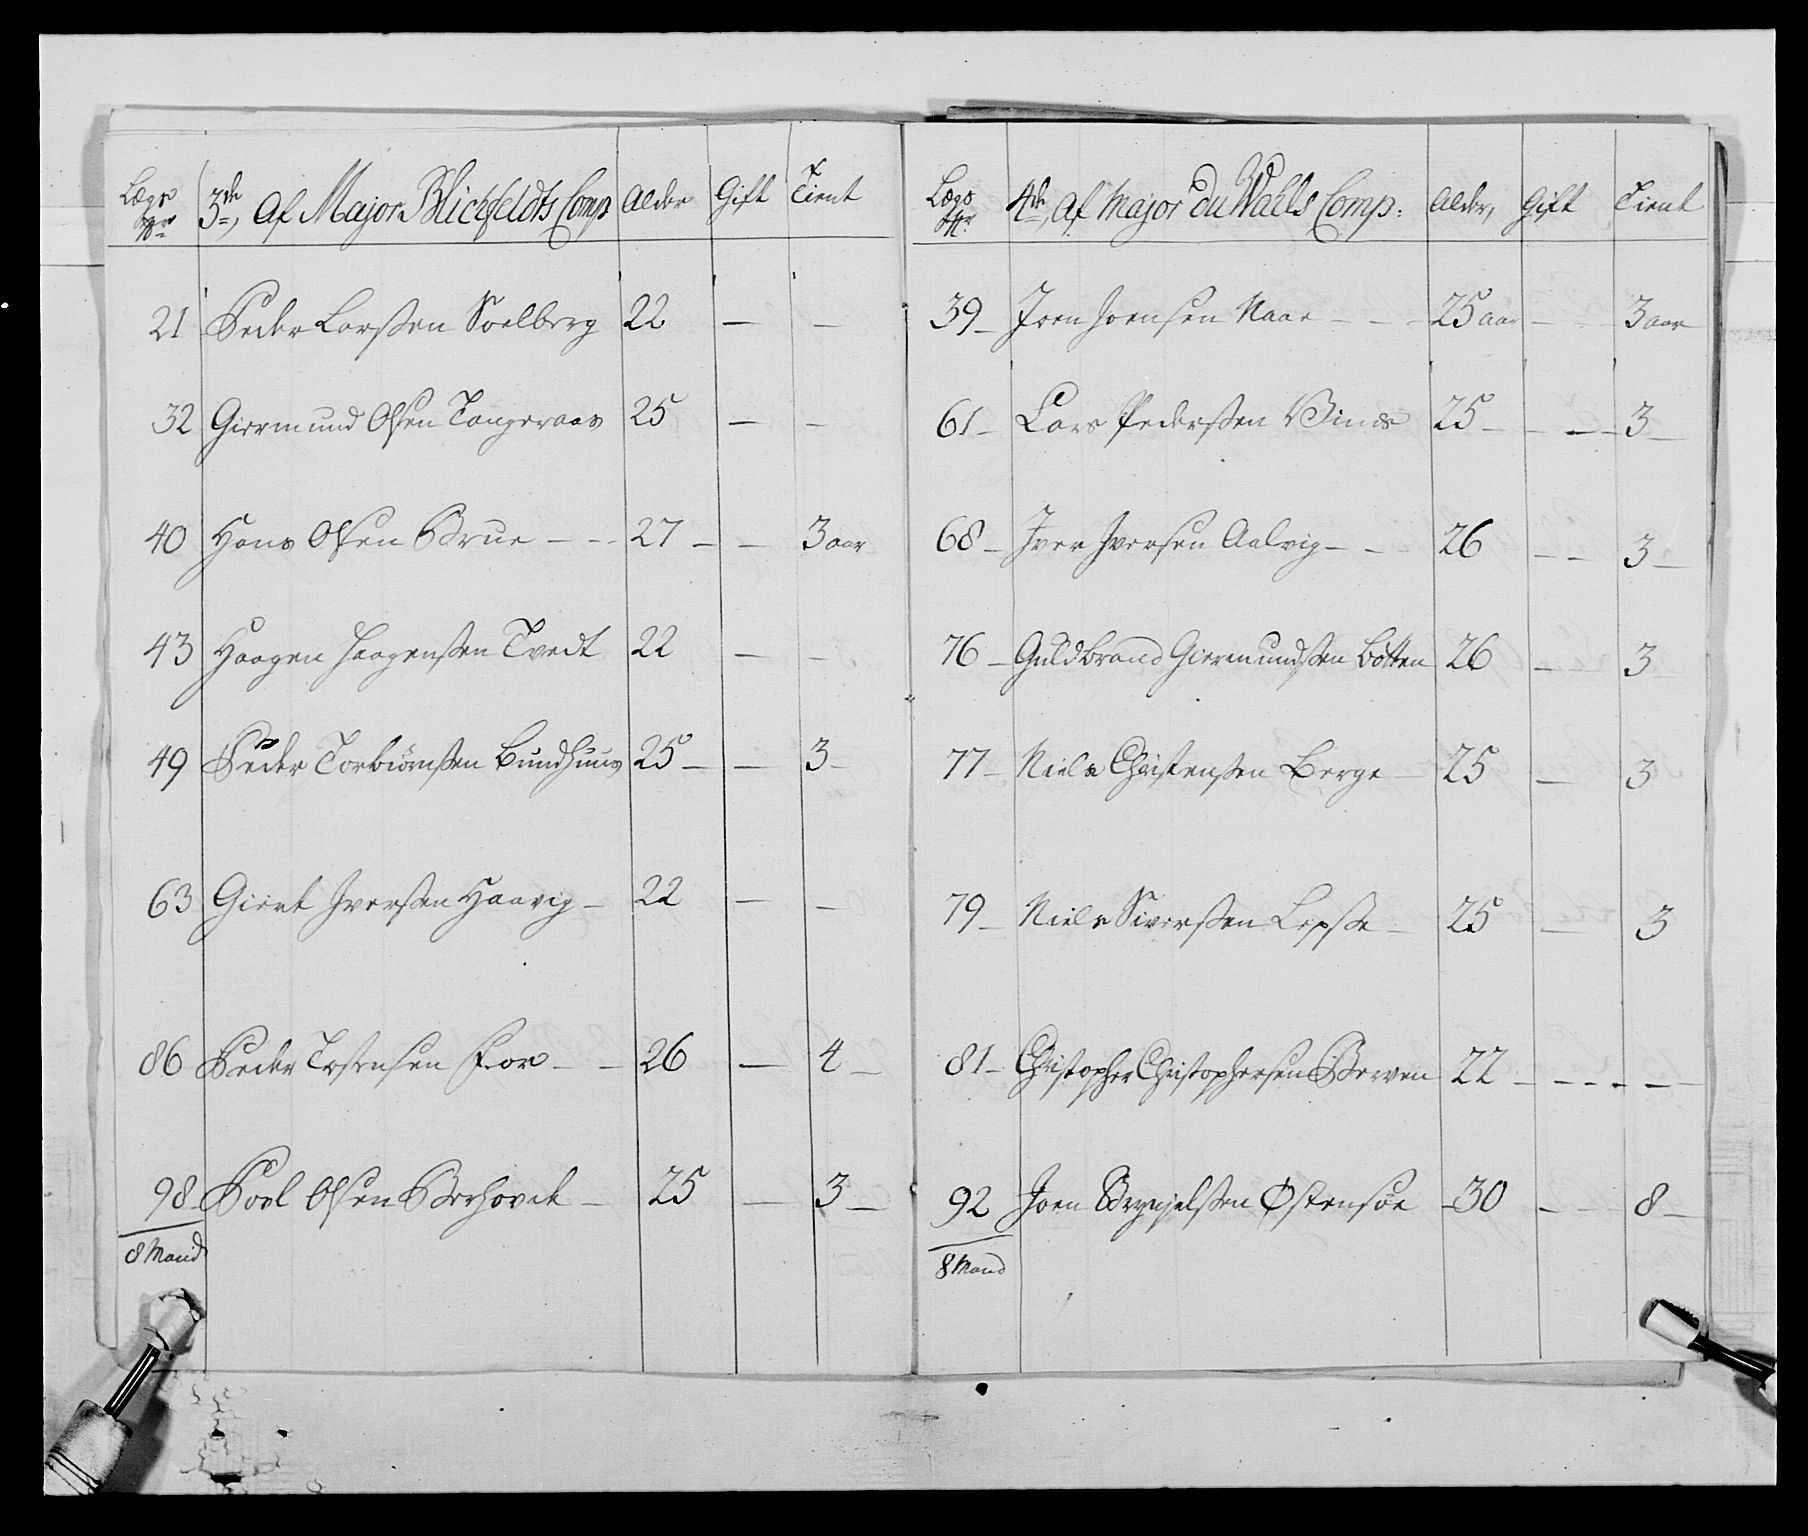 Lægs No 3de, Af Major Blichfeldts Comp Alder Gift Tient
21 Peder Larssen Soelberg 22 — —
32 Giermund Olsen Tangeraas 25 — —
40 Hans Olsen Brue — — 27 — — 3 aar
43 Haagen Haagenssen Tvedt 22 — —
49 Peder Torbiørnssen Bundhuus 25 — — 3 —
63 Giert Iverssen Haavig — 22 — —
86 Peder Tostensen Flor — — 26 — 4 —
98 Povl Olsen Berhovet — 25 — 3 —
8 Mand
Lægs No 4de, Af Major du Wahls Comp: Alder, Gift Tient
39 — Joen Joensen Naae — — — 25 aar — — 3 aar
61 — Lars Pederssen Winds 25 — — — 3 —
68 — Iver Iversen Aalvig — — 26 — — 3 —
76 — Guldbrand Giermundssen Botten 26 — — 3 —
77 — Niels Christenssen Berge — 25 — 3
79 — Niels Siverssen Lepsse — 25 — 3
81 — Christopher Christophersen Berven 22 — — — — —
92 Joen Brynjelssen Østensøe — 30 — — 8 —
8 Mand